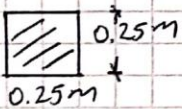 0.25m
0.25m